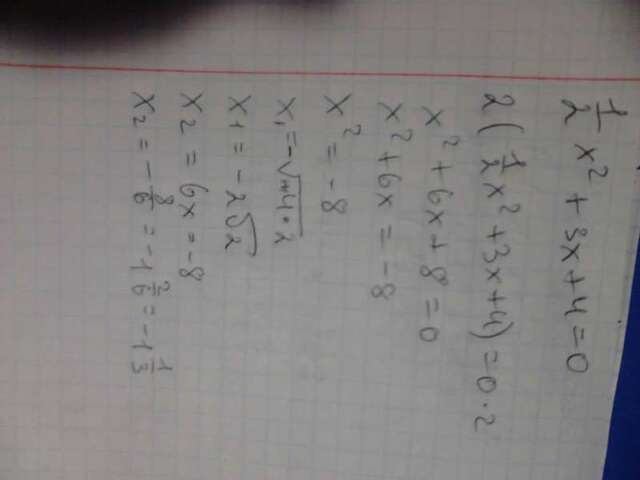 1/2 x² + 3x + 4 = 0
2(1/2 x² + 3x + 4) = 0 · 2
x² + 6x + 8 = 0
x² + 6x = -8
x² = -8
x₁ = -√4·2
x₁ = -2√2
x₂ = 6x = -8
x₂ = -8/6 = -1 2/6 = -1 1/3